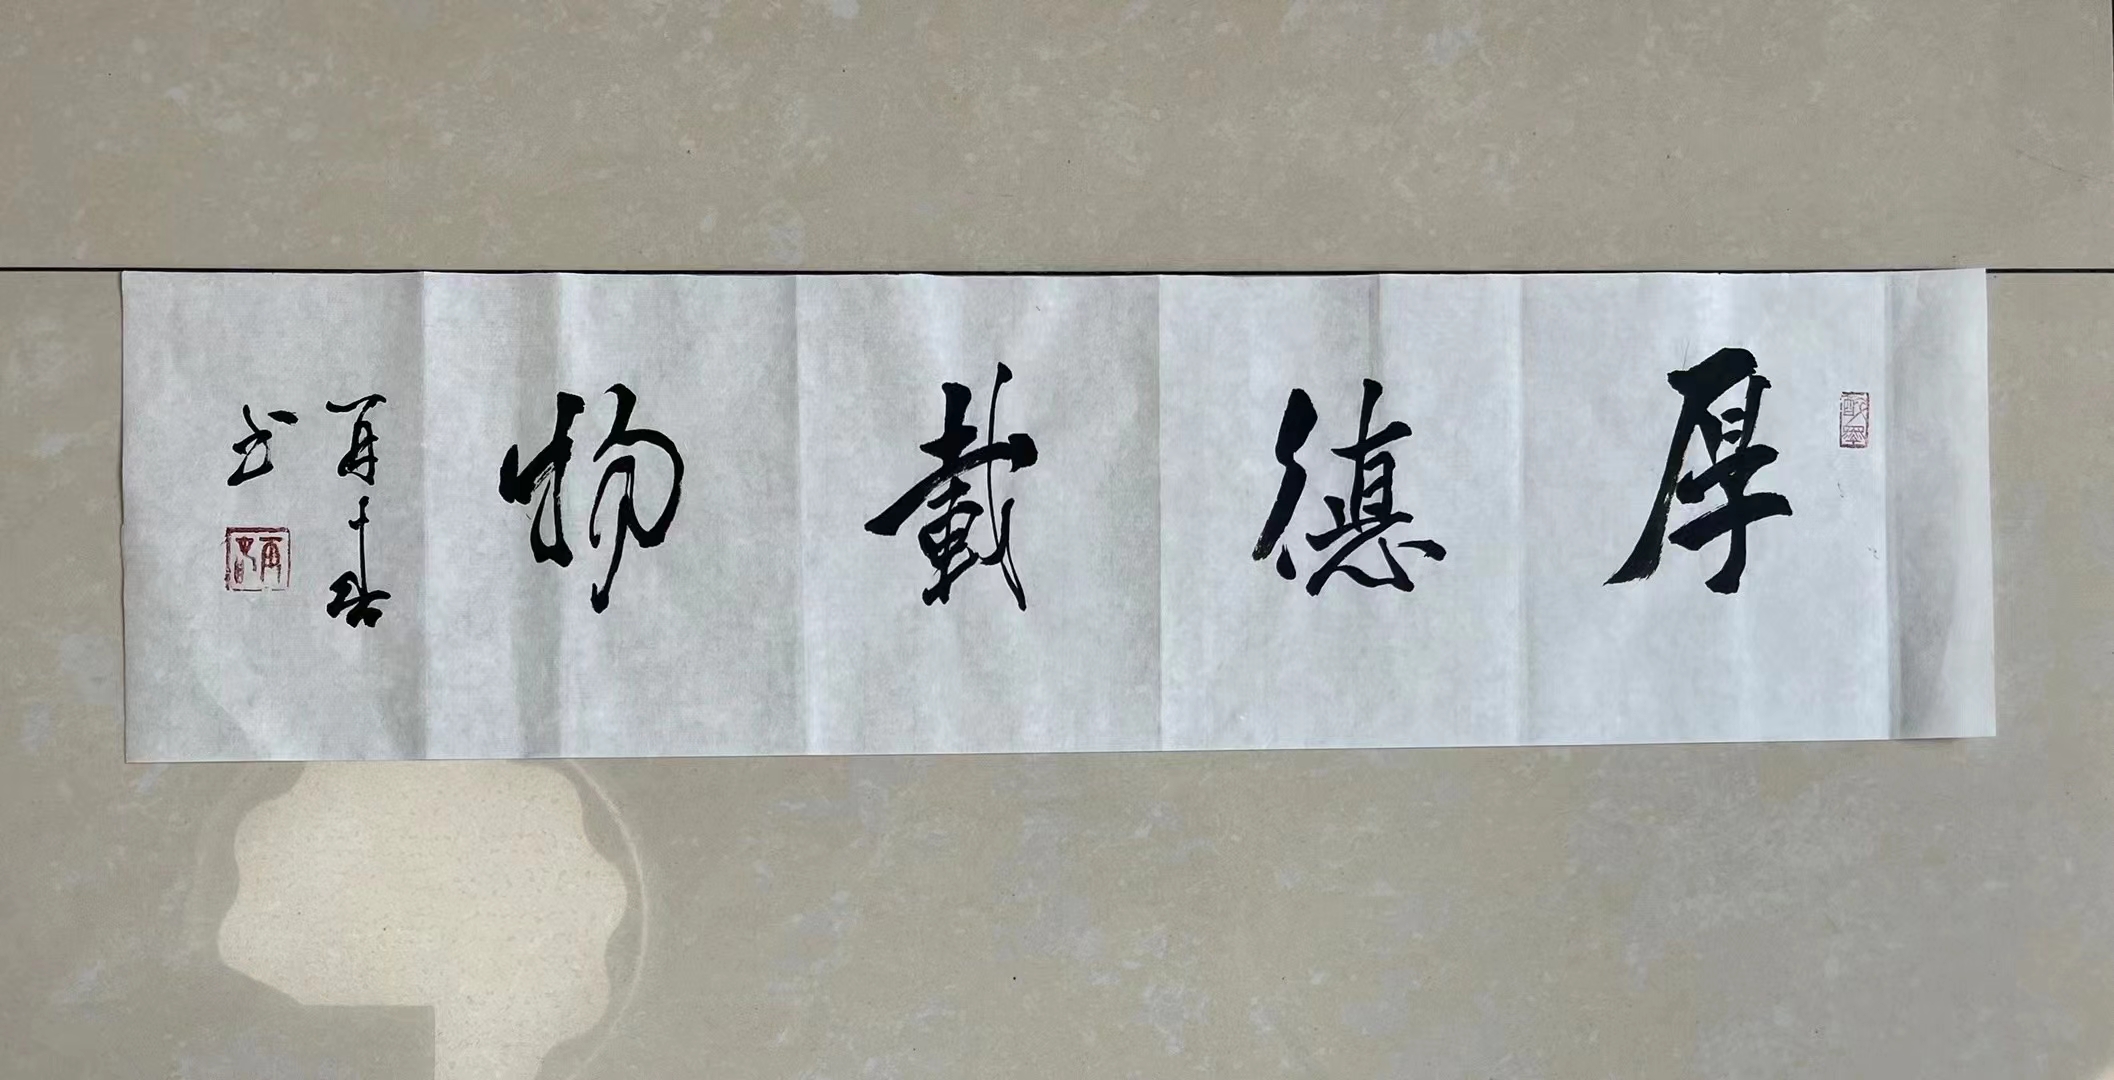 厚德載物
书